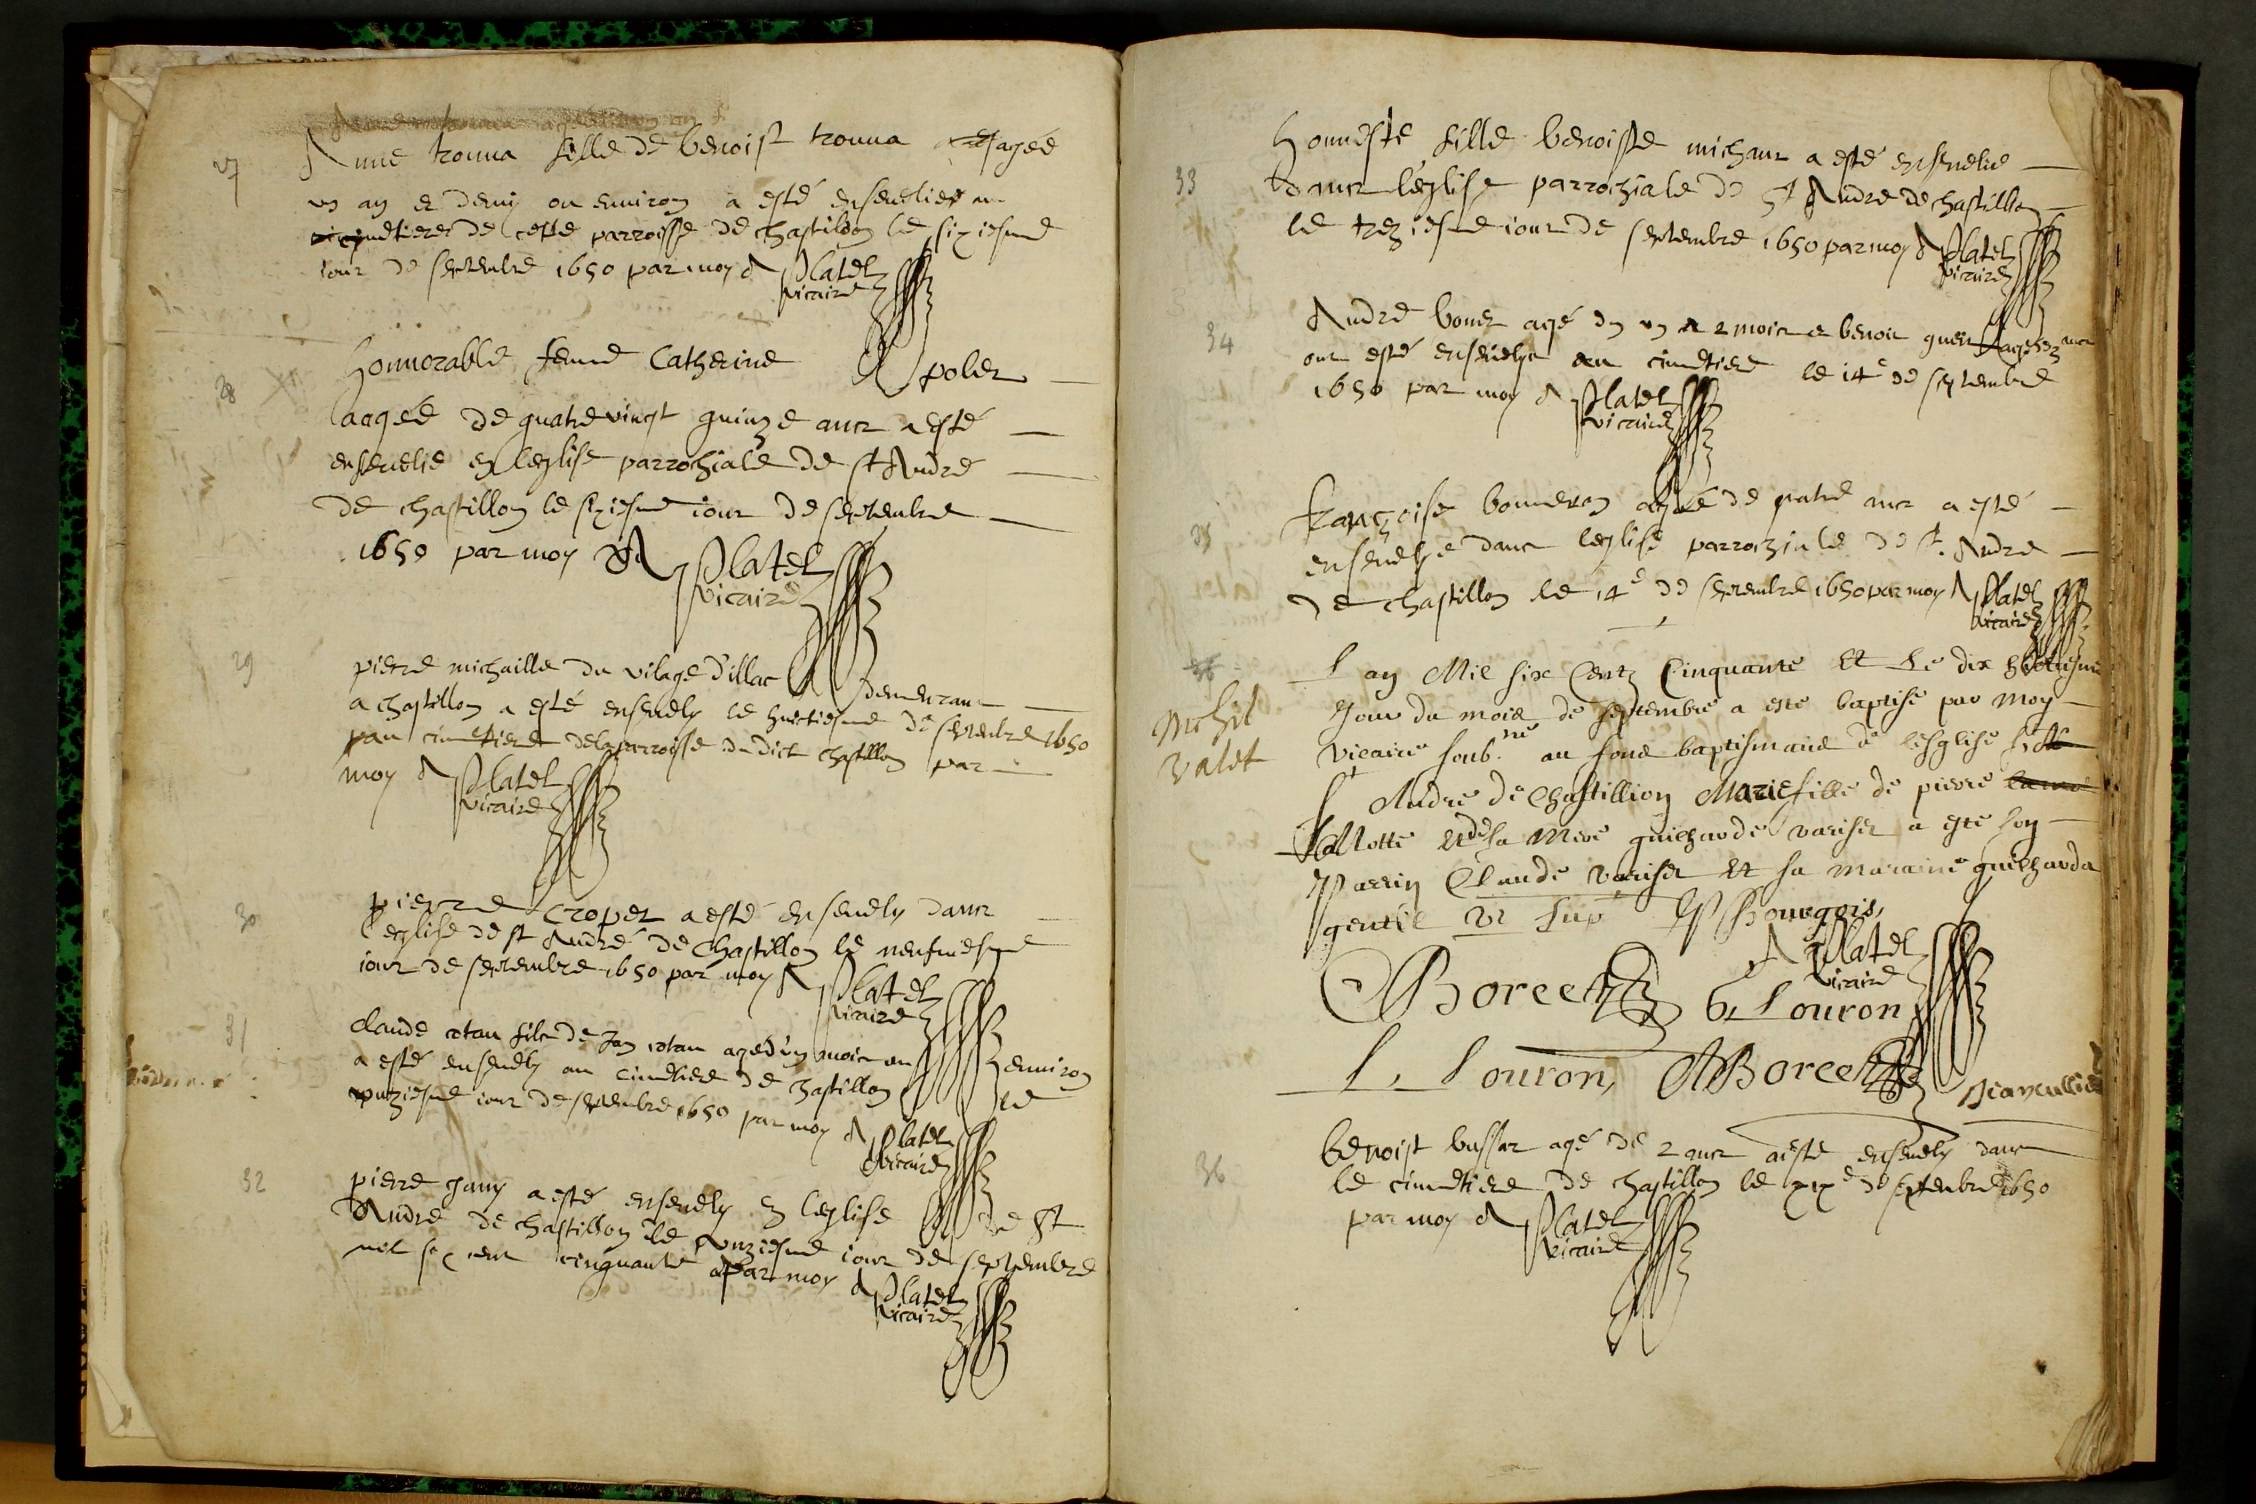 27
Anne trouva fille de benoist trouva aagée
un an et demy ou environ a esté ensevelie au
cimetiere de cette parroisse de chastillon le sixiesme
jour de septembre 1650 par moy A Platet
vicaire
28
honnorable femme Catherine polet
aagée de quatre vingt quinze ans a esté
ensevelie en leglise parrochiale de st André
de chastillon le sixiesme jour de septembre
1650 par moy A Platet
vicaire
29
pierre michaille du vilage d'illac demeurant
a chastillon a esté ensevely le huictiesme de septembre 1650
au cimetiere de la parroisse du dict chastillon par
moy A Platet
vicaire
30
pierre cropet a esté ensevely dans
l'eglise de st André de Chastillon le neufviesme
jour de septembre 1650 par moy A Platet
vicaire
31
claude cotan fils de Jan cotan agé d'un mois ou environ
a esté ensevely au cimetiere de chastillon le
unziesme jour de septembre 1650 par moy A Platet
vicaire
32
pierre Jany a esté ensevely en leglise de St
André de chastillon le unziesme jour de septembre
mil six cent cinquante par moy A Platet
vicaire
33
honneste fille benoiste michaut a esté ensevelie
dans l'eglise parrochiale de St André de chastillon
le treziesme jour de septembre 1650 par moy A Platet
vicaire
34
André bouet agé d'un an 2 mois et benoit
ont esté ensevelys au cimetiere le 14e de septembre
1650 par moy A Platet
vicaire
35
françoise bonneron agée de quatre ans a esté
ensevelye dans l'eglise parrochiale de st. André
de chastillon le 14e de septembre 1650 par moy A Platet
vicaire
36
L'an Mil six Centz Cinquante Et Le dix huictiesme
Jour du mois de septembre a esté baptisé par moy
vicaire soub.né au fons baptismaus de l'esglise
St André de Chastillion Marie fille de pierre
Motte et de sa Mere guicharde variset a esté son
Parrin Claude variset Et sa maraine guicharda
gentil ut sup P Bourgois
A Platet
vicaire
Borcet G. Louron
L. Louron, A Borcet
36
benoist bussat agé de 2 ans a esté ensevely dans
le cimetiere de chastillon le xixe de septembre 1650
par moy A Platet
vicaire